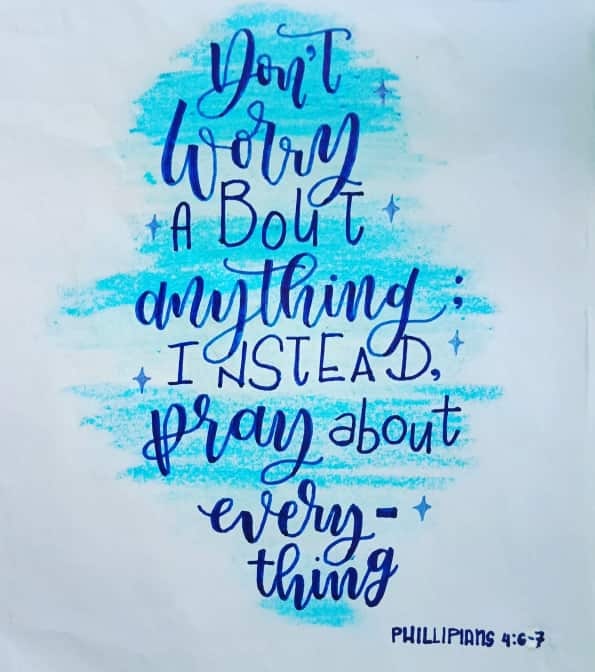 Don't
Worry
A BoUT
anything;
INSTEAD,
pray about
every-
thing
PHILLIPIANS 4:6-7